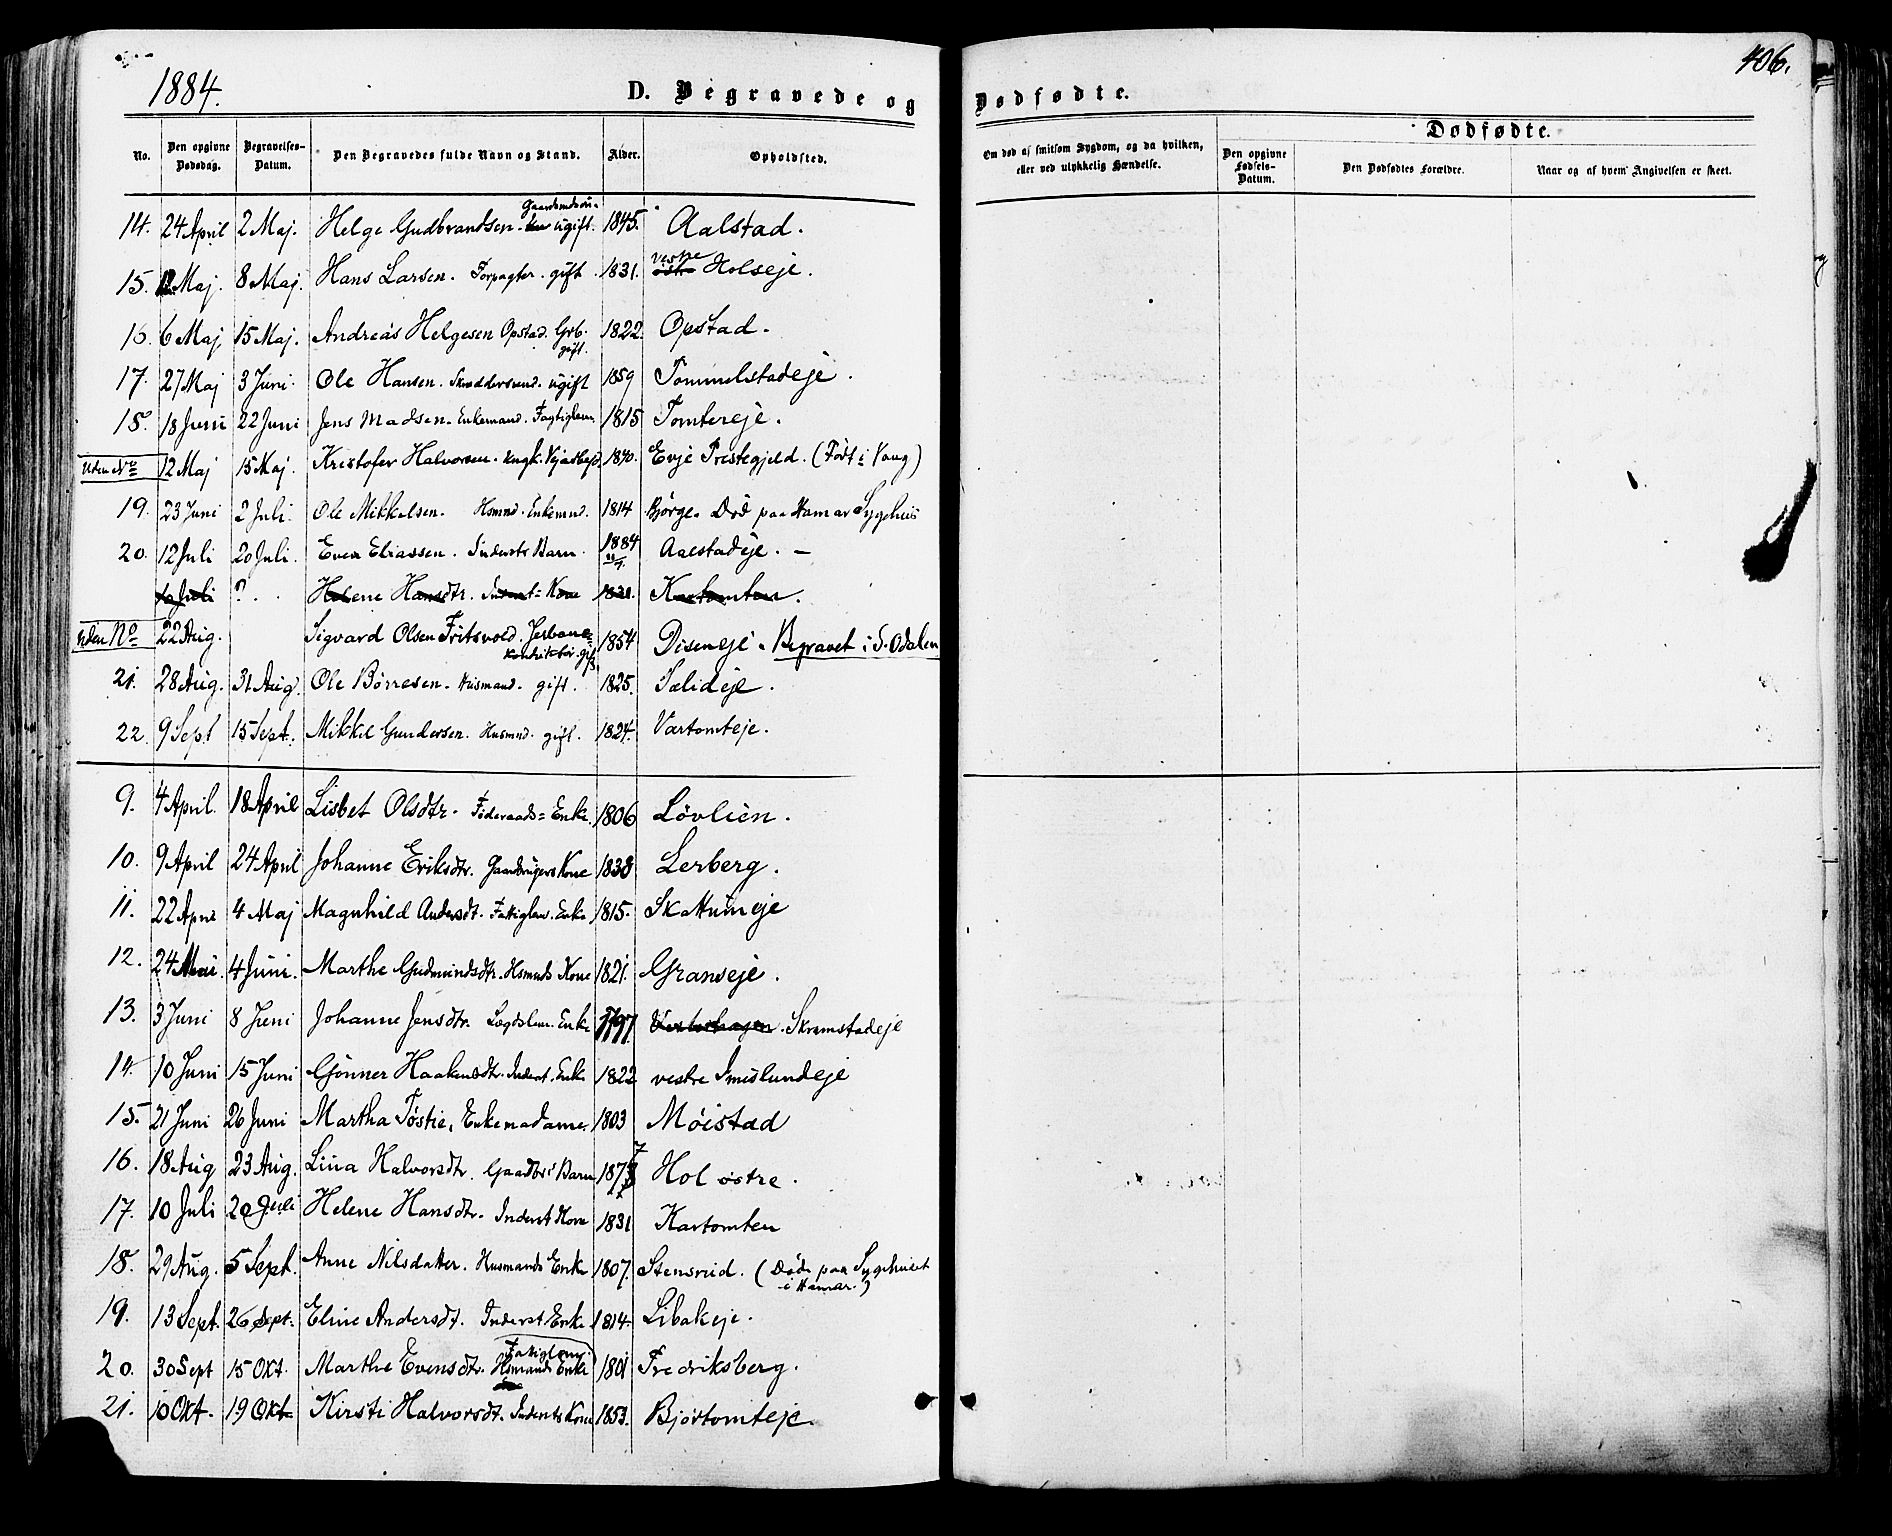 1884.
D. Begravede og
Dødfødte.
406.
No.
Den opgivne Dødsdag.
Begravelses-Datum.
Den Begravedes fulde Navn og Stand.
Alder.
Opholdsted.
Om død af smitsom Sygdom, og da hvilken, eller ved ulykkelig Hændelse.
Dødfødte.
Den opgivne Fødsels-Datum.
Den Dødfødtes Forældre.
Naar og af hvem Angivelsen er skeet.
14. 24 April 2 Maj. Helge Gudbrandsen. ugift. 1845. Aalstad.
15. Maj. 8 Maj. Hans Larsen. Forpagter. gift. 1831. vestre Holseje.
16. 6 Maj. 15 Maj. Andreas Helgesen Opstad. Grb. gift. 1822. Opstad.
17. 27 Maj 3 Juni. Ole Hansen. ugift 1859 Tommelstadeje.
18. 18 Juni 22 Juni Jens Madsen. Enkemand. Fattiglem 1815 Tomtereje.
Uden No 12 Maj 15 Maj. Kristofer Halvorsen. 1840. Evje Prestegjeld. (Født i Vang)
19. 23 Juni 2 Juli. Ole Mikkelsen. Hsmnd. Enkemnd. 1814 Bjørge. Død paa Hamar Sygehus
20. 12 Juli 20 Juli. Even Eliassen. Indersts Barn. 1884 Aalstadeje. –
10 Juli ? Helene Hansdtr. Inderst= Kone 1831. Kartomten.
Uden No 22 Aug. Sigvard Olsen Fritsvold. Jerbane= gift. 1854 Diseneje. Begravet i S. Odalen
21. 28 Aug. 31 Aug. Ole Børresen. Husmand. gift. 1825. Sælideje.
22. 9 Sept 15 Sept. Mikkel Gundersen. Husmnd. gift. 1824. Vartomteje.
9. 4 April. 18 April Lisbet Olsdtr. Føderaads= Enke. 1806 Løvlien.
10. 9 April 24 April Johanne Eriksdtr. Gaardbrugers Kone 1838 Lerberg.
11. 22 April 4 Maj Magnhild Andersdt. Fattiglem. Enke 1815. Skattumeje
12. 24 Mai. 4 Juni. Marthe Gudmundsdtr. Hsmnds Kone 1821. Granseje.
13. 3 Juni 8 Juni Johanne Jensdtr. Lægdslem. Enke 1797. Skramstadeje
14. 10 Juni 15 Juni Gønner Haakensdtr. Inderst. Enke 1822 vestre Imislundeje
15. 21 Juni 26 Juni Martha Tøstie, Enkemadame. 1803 Møistad
16. 18 Aug 23 Aug. Lina Halvorsdtr. Gaardbr. Barn 187 Hol østre.
17. 10 Juli 20 Juli Helene Hansdtr. Inderst Kone 1831 Kartomten
18. 29 Aug. 5 Sept. Anne Nilsdatter. Husmands Enke 1807. Stensrud. (Døde paa Sygehuset i Hamar.)
19. 13 Sept. 26 Sept. Eline Andersdt. Inderst Enke 1814. Libakeje.
20. 30 Sept 15 Okt. Marthe Evensdtr. Fattiglem. Hsmands Enke 1801 Fredriksberg.
21. 10 Okt. 19 Okt Kirsti Halvorsdt. Indersts Kone 1853. Bjørtomteje.